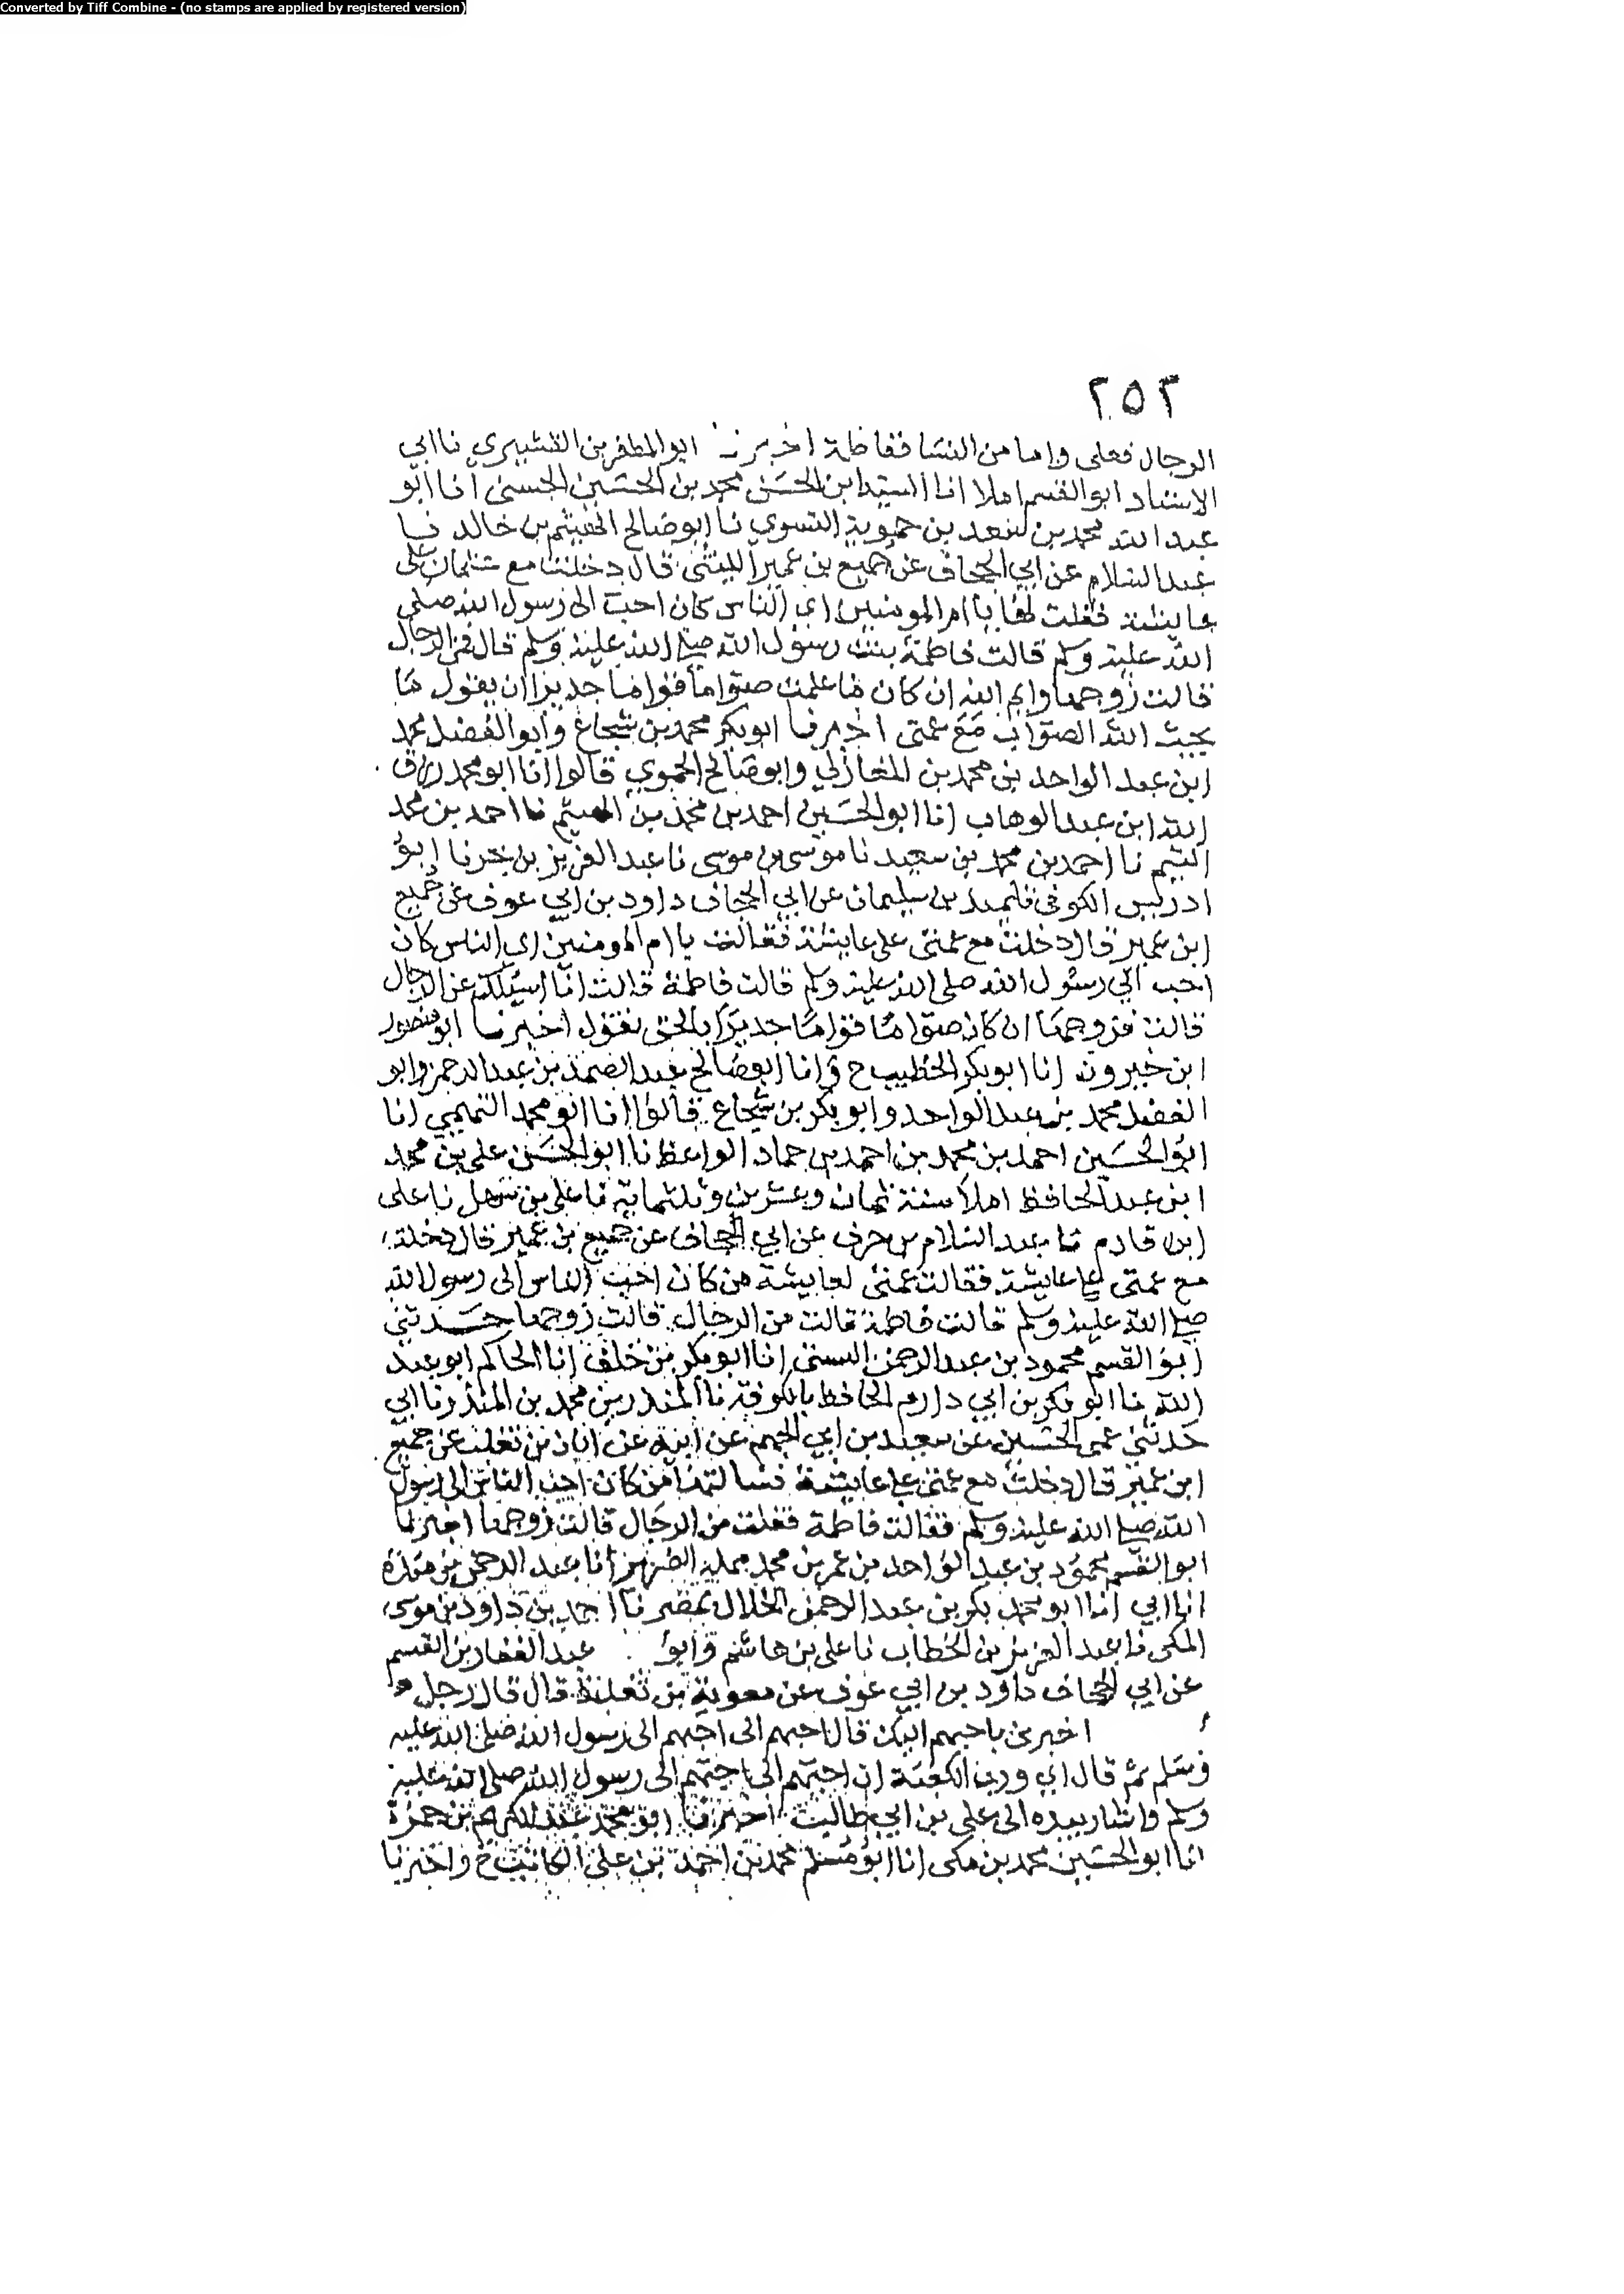 Converted by Tiff Combine - (no stamps are applied by registered version)
٢٥٢
الرجال فعلى واما من النسا ففاطمة اخبرنا ابو المظفر بن القشيري نا ابي
الاستاد ابو القسم املا انا السيد ابن الحسن محمد بن الحسين الحسنى انا ابو
عبد الله محمد بن سعد بن حموية النسوي نا ابو صالح الهيثم بن خالد نا
عبد السلام عن ابي الجحاف عن جميع بن عمير الليثى قال دخلت مع على
عايشة فقلت لها يا ام المومنين اي الناس كان احب الى رسول الله صلى
الله عليه وسلم قالت فاطمة بنت رسول الله صلى الله عليه وسلم قال فمن الرجال
قالت زوجها وايم الله ان كان ما علمت صواما قواما جديرا ان يقول ما
يحب الله الصواب مع عمتى اخبرنا ابو بكر محمد بن شجاع وابو الفضل محمد
ابن عبد الواحد بن محمد بن المغازلي وابو صالح الحموي قالوا انا ابو محمد رزق
الله ابن عبد الوهاب انا ابو الحسين احمد بن محمد بن الهيثم نا احمد بن محمد
نا احمد بن محمد بن سعيد نا موسى بن موسى نا عبد العزيز بن نا ابو
ادريس الكوفى تليد بن سليمان عن ابي الجحاف داود بن ابي عوف عن جميع
ابن عمير قال دخلت مع عمتى على عايشة فقالت يا ام المومنين اي الناس كان
احب الي رسول الله صلى الله عليه وسلم قالت فاطمة قالت انا اسئلك عن الرجال
قالت فزوجها ان كان صواما قواما جديرا بالحق يقول اخبرنا ابو منصور
ابن خيرون انا ابو بكر الخطيب ح وانا ابو صالح عبد الصمد بن عبد الرحمن وابو
الفضل محمد بن عبد الواحد وابو بكر بن شجاع قالوا انا ابو محمد التميمي انا
ابو الحسين احمد بن محمد بن احمد بن حماد الواعظ نا ابو الحسن على بن محمد
ابن عبد الحافظ املا سنة ثمان وعشرين وثلثماية نا على بن سهل نا على
ابن قادم نا عبد السلام بن حرب عن ابي الجحاف عن جميع بن عمير قال دخلت
مع عمتى على عايشة فقالت عمتى لعايشة من كان احب الناس الى رسول الله
صلى الله عليه وسلم قالت فاطمة قالت من الرجال قالت زوجها حدثني
ابو القسم محمود بن عبد الرحمن البستى انا ابو بكر بن خلف انا الحاكم ابو عبد
الله نا ابو بكر بن ابي دارم الحافظ بالكوفة نا المنذر بن محمد بن المنذر نا ابي
حدثني عمى الحسين عن سعيد بن ابي الجهم عن ابيه عن ابان بن تغلب عن جميع
ابن عمير قال دخلت مع عمتى على عايشة فسالتها من كان احب الناس الى رسول
الله صلى الله عليه وسلم فقالت فاطمة فقلت من الرجال قالت زوجها اخبرنا
ابو القسم محمود بن عبد الواحد بن عمر بن محمد انا عبد الرحمن بن منده
انا ابي انا ابو محمد بكر بن عبد الرحمن الخلال بمصر نا احمد بن داود بن موسى
المكى نا عبد العزيز بن الخطاب نا على بن هاشم وابو عبد الغفار بن القسم
عن ابي الجحاف داود بن ابي عوف عن معوية بن ثعلبة قال قال رجل
اخبرنى باحبهم اليك قال احبهم الى احبهم الى رسول الله صلى الله عليه
وسلم ثم قال اي ورب الكعبة ان احبهم الى احبهم الى رسول الله صلى الله عليه
وسلم واشار بيده الى على بن ابي طالب اخبرنا ابو محمد عبد الكريم بن حمزة
انا ابو الحسين محمد بن مكى انا ابو مسلم محمد بن احمد بن على الكاتب ح واخبرنا